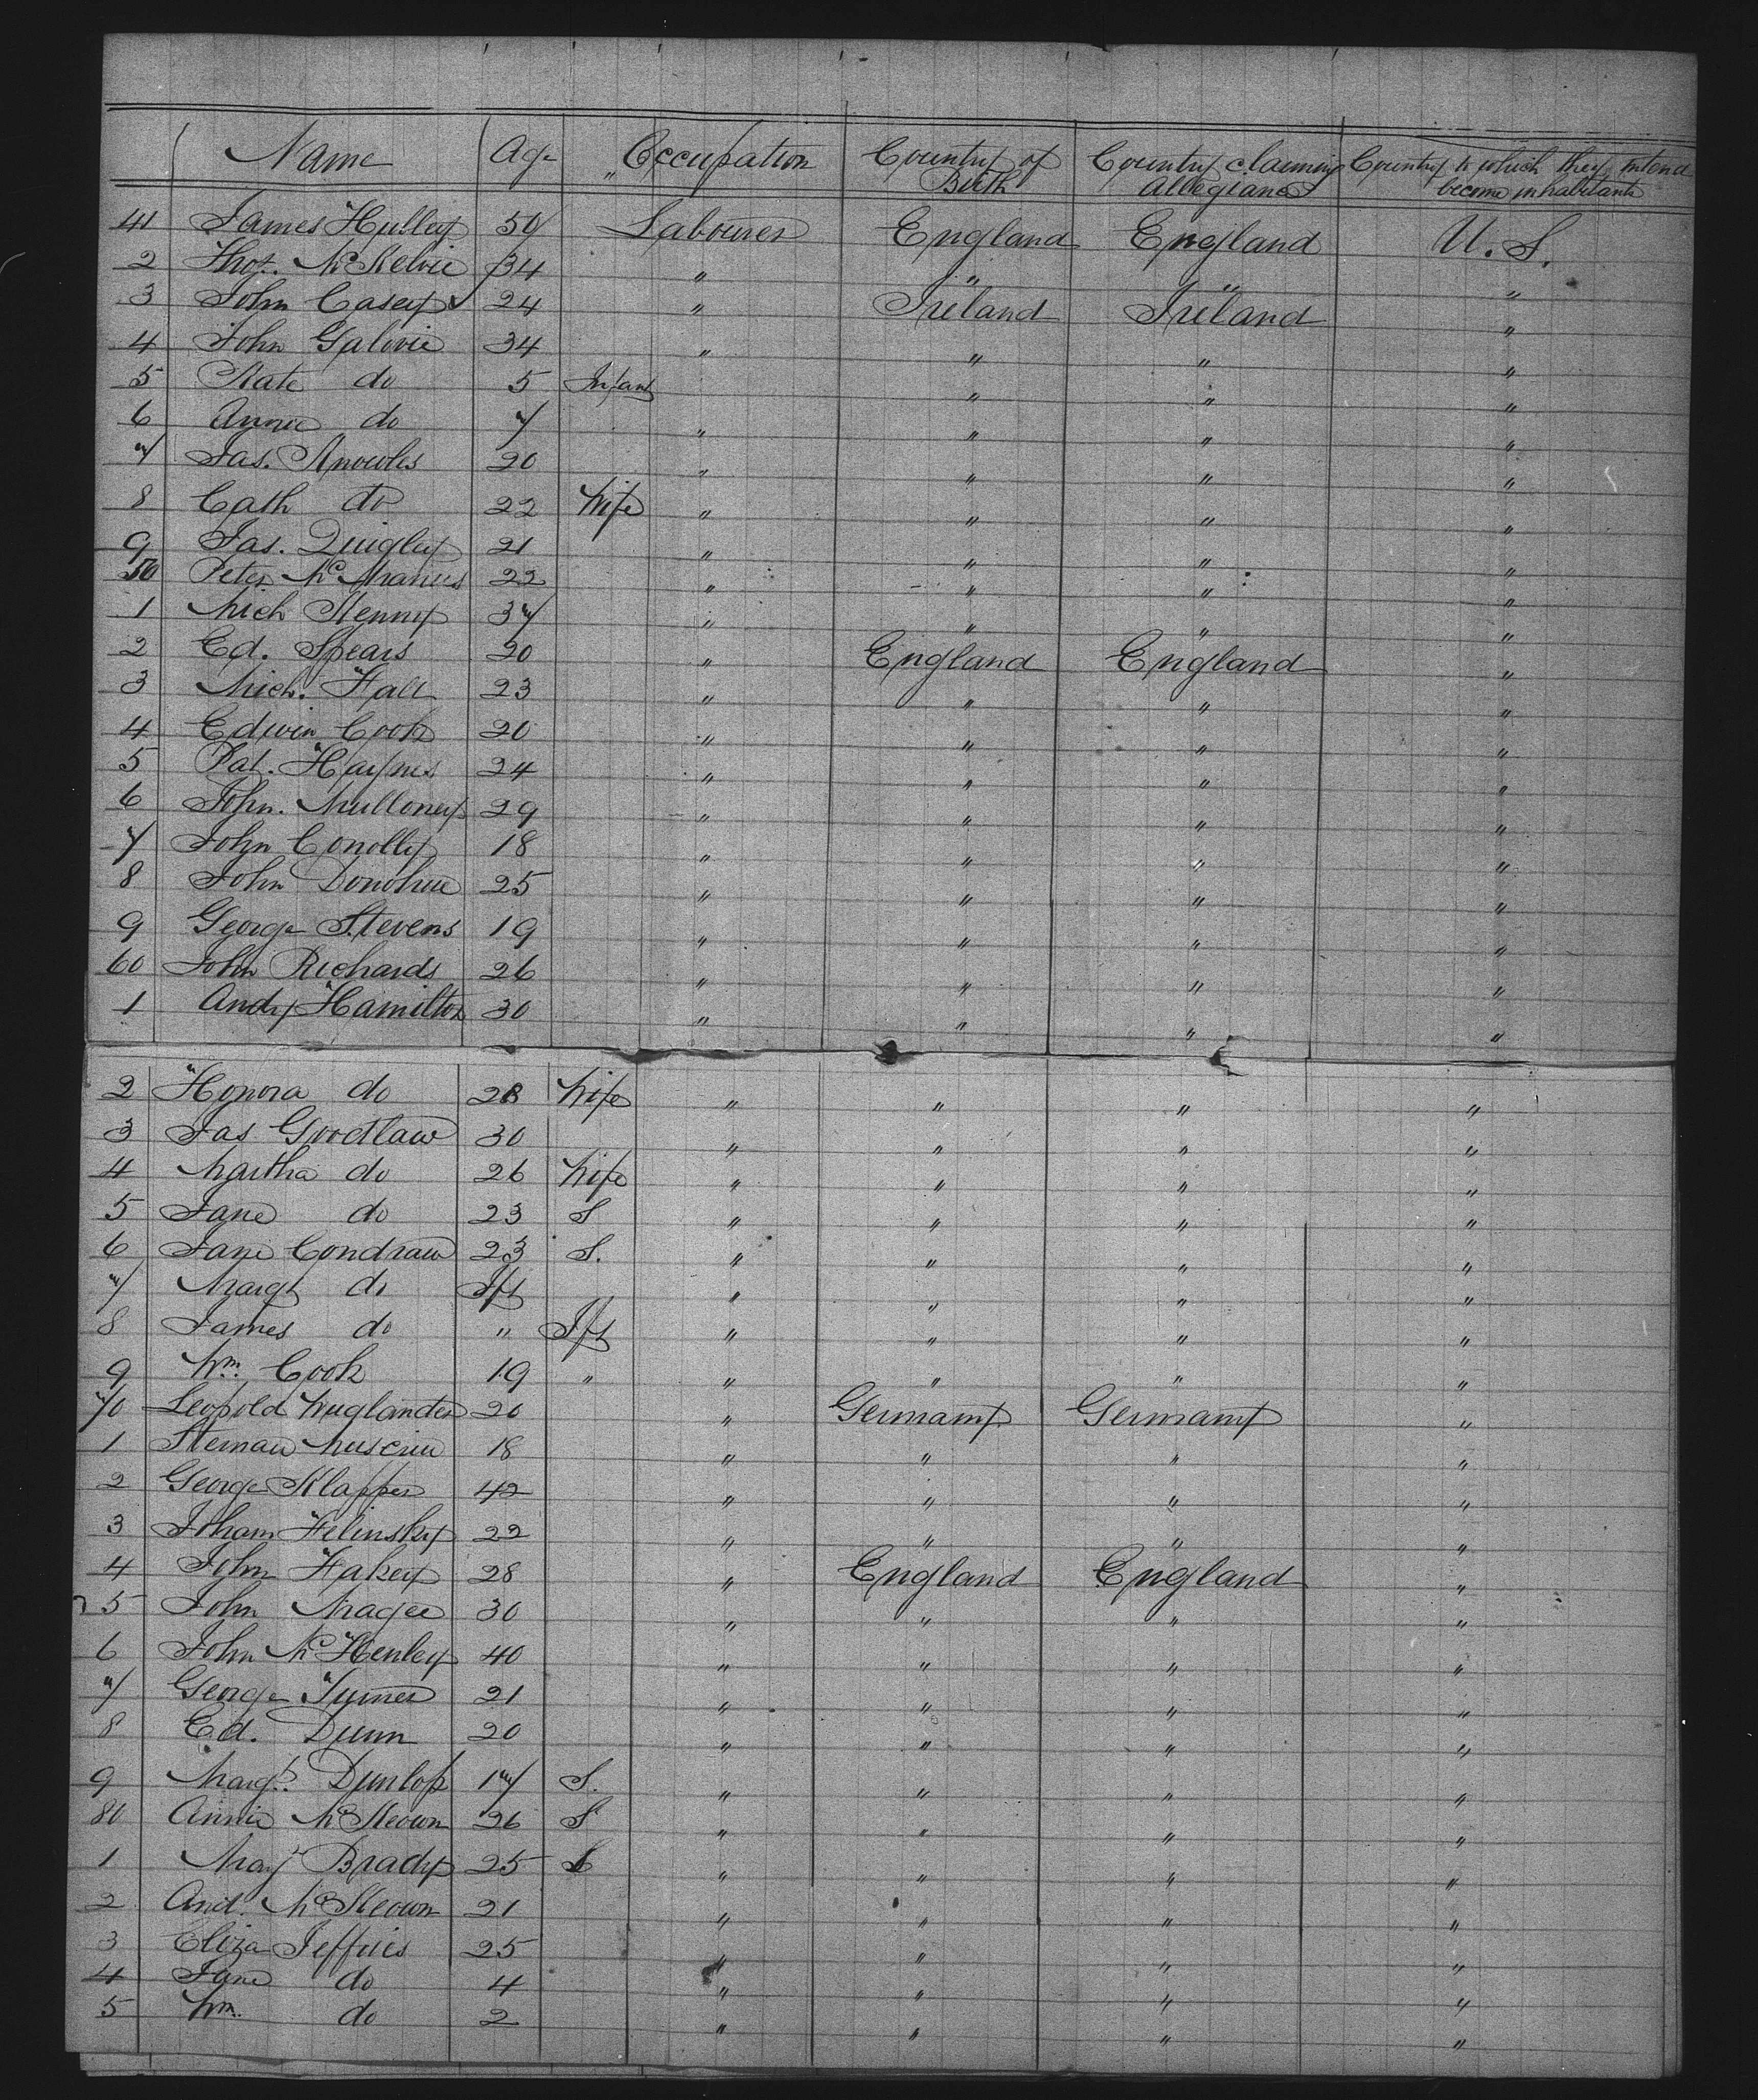 Name Age Occupation Country of Birth Country claiming Allegiance Country to which they intend become inhabitants
41 James Hulley 50 Labourer England England U. S.
2 Thos. McKelvie 34 " " " "
3 John Casey 24 " Ireland Ireland "
4 John Galovie 34 " " " "
5 Kate do 5 Infant " " "
6 Annie do 7 " " " "
7 Jas. Knowles 20 " " " "
8 Cath do 22 Wife " " " "
9 Jas. Quigley 21 " " " "
50 Peter McManus 22 " " " "
1 Mich Kenny 37 " " " "
2 Ed. Spears 20 " England England "
3 Mich. Hall 23 " " " "
4 Edwin Cook 20 " " " "
5 Pat. Haynes 24 " " " "
6 John. Mulloney 29 " " " "
7 John Conolly 18 " " " "
8 John Donohue 25 " " " "
9 George Stevens 19 " " " "
60 John Richards 26 " " " "
1 Andy Hamilton 30 " " " "
2 Honora do 28 Wife " " " "
3 Jas Goodlaw 30 " " " "
4 Martha do 26 Wife " " " "
5 Jane do 23 S " " " "
6 Jane Condraw 23 S. " " " "
7 Margt do Ift " " " "
8 James do " Ift " " " "
9 Wm. Cook 19 " " " " "
70 Leopold 20 " Germany Germany "
1 18 " " " "
2 George Klapper 42 " " " "
3 Felinsky 22 " " " "
4 John Fahey 28 " England England "
5 John Magee 30 " " " "
6 John McHenley 40 " " " "
7 George Turner 21 " " " "
8 Ed. Dunn 20 " " " "
9 Margt. Dunlop 17 S. " " " "
80 Annie McKeown 26 S " " " "
1 Mary Brady 25 S " " " "
2 And. McKeown 21 " " " "
3 Eliza Jeffries 25 " " " "
4 Jane do 4 " " " "
5 Wm. do 2 " " " "